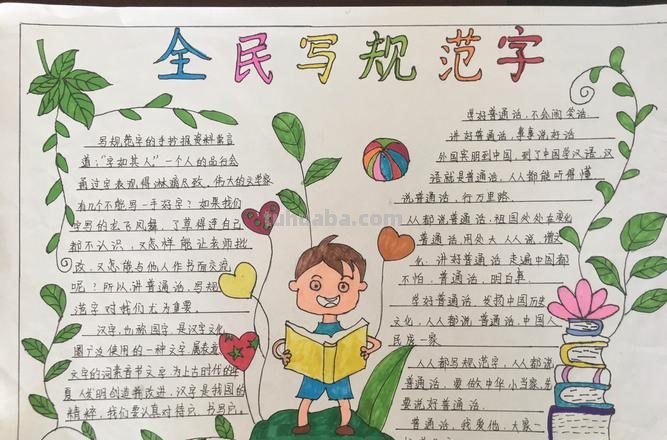 全民写规范字
写规范字的手抄报资料常言
道："字如其人"一个人的品行会
通过字表现得淋漓尽致。伟大的文学家
有几个不能写一手好字？如果我们
字写的龙飞凤舞，了草得连自己
都不认识，又怎样能让老师批
改，又怎能与他人作书面交流
呢？所以讲普通话，写规
范字对我们尤为重要。
汉字，也称国字，是汉字文化
圈广泛使用的一种文字属表意
文字的词素音节文字，为上古时代的华
夏人发明创造并改进，汉字是我国的
精粹，我们要认真对待它，书写它。
学好普通话，不会闹笑话
讲好普通话，事事说好话
外国宾朋到中国，到了中国学汉语，汉
语就是普通话，人人都能听得懂
说普通话，行万里路
人人都说普通话，祖国处处在变化
普通话，用处大，人人说，
讲好普通话，走遍中国都
不怕，普通话，明白易
学好普通话，发扬中国历史
文化，人人都说普通话，中国人
民成一家
人人都写规范字，人人都说
普通话，要做中华小当家，总
要说好普通话
普通话，我爱你，大家一
fuhdaba.com